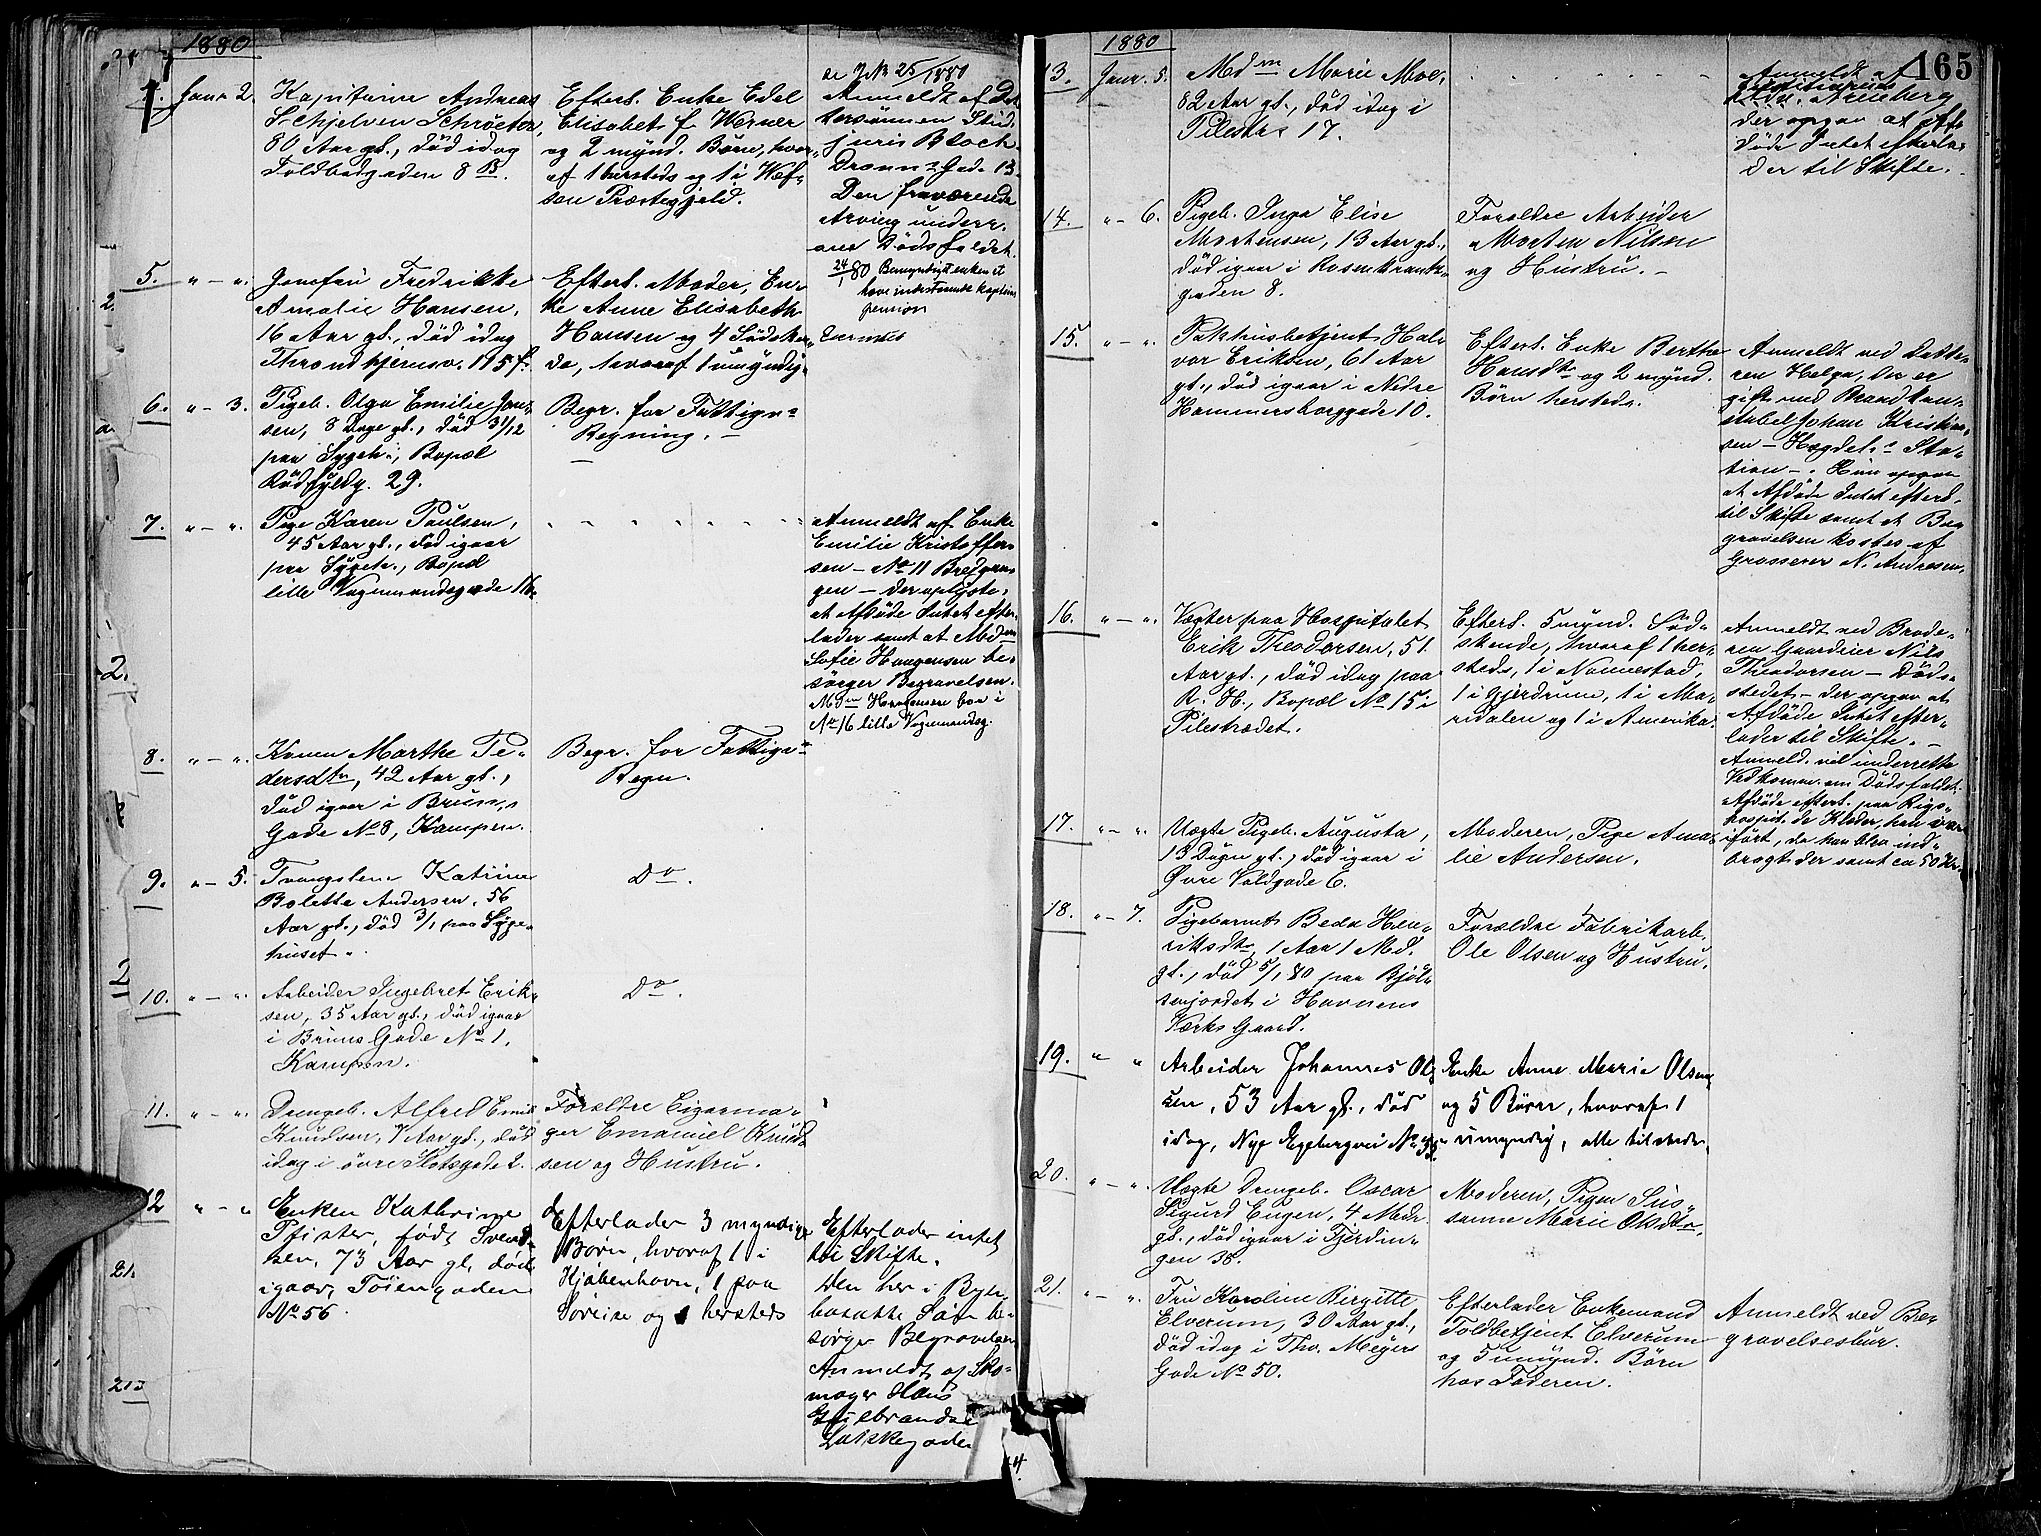 1880
4. Janr 2. Kapitaine Andreas
Schjelven Schröeter,
80 Aar gl., död idag
Toldbodgaden 8 B.
Efterl. Enke Edel
Elisabet f. Werner
og 2 mynd. Börn, hvor-
af 1 hersteds og 1 i Vef-
sen Præstegjeld.
se J.N. 25/1880
Anmeldt af Dat-
tersönnen Stud.
juris Bloch
Dronn.s Gade 13.
Den fraværende
Arving underr.
om Dödsfaldet.
24/1 80 Bemyndigt enken at
hæve indestaaende kapteins
pension
5. " - ". Jomfru Fredrikke
Amalie Hansen,
16 Aar gl., död idag
Throndhjemsv. 115 f.
Efterl. Moder, En-
ke Anne Elisabeth
Hansen og 4 Södsken-
de, hvoraf 1 umyndig.
6. " - 3. Pigeb. Olga Emilie Jan-
sen, 8 Dage gl., död 31/12
paa Sygeh., Bopæl
Rödfyldg. 29.
Begr. for Fattign-
Regning. -
7. " - ". Pige Karen Paulsen,
45 Aar gl., död igaar
paa Sygeh., Bopæl
lille Vognmandsgade 16.
Anmeldt af Enke
Emilie Kristoffer-
sen - No 11 Bredgan-
gen - der oplyste,
at Afdöde Intet efter-
lader samt at Mdm
Sofie Haagensen be-
sörger Begravelsen.
Mdm Haagensen bor i
No 16 lille Vognmandsg.
8. " - ". Konen Marthe Pe-
dersdtr, 42 Aar gl.,
död igaar i Bruns
Gade No 8, Kampen.
Begr. for Fattign-
Regn.
9. " - 5. Tvangslem Katrine
Bolette Andersen, 56
Aar gl., död 3/1 paa Syge-
huset.
Do.
10. " - ". Arbeider Ingebret Erik-
sen, 35 Aar gl., död igaar
i Bruns Gade No 1,
Kampen.
Do.
11. " - ". Drengeb. Alfred Emil
Knudsen, 1 Aar gl., död
idag i övre Slotsgade 2.
Forældre Cigarma-
ger Emanuel Knud-
sen og Hustru.
12 " - " Enken Kathrine
Pfister, född Svend-
sen, 73 Aar gl, död
igaar, Töiengaden
No 56.
Efterlader 3 myndige
Börn, hvoraf 1 i
Kjöbenhavn, 1 paa
Söreise og 1 hersteds
Efterlader intet
til Skifte.
Den her i Byen
bosatte Sön be-
sörger Begravelsen
Anmeldt af Sko-
mager Hans
Gulbrandsen
Lakkegaden
165
1880
13. Janr. 5. Mdm Marie Moe,
82 Aar gl., död idag i
Pilestr. 17.
Anmeldt af
der opgav at Af-
döde Intet efterla-
der til Skifte.
14. " - 6. Pigeb. Inga Elise
Mortensen, 13 Aar gl.,
död igaar i Rosenkrantz-
gaden 8.
Forældre Arbeider
Morten Nilsen
og Hustru. -
15. " - ". Pakhusbetjent Hal-
vor Eriksen, 61 Aar
gl., död igaar i Nedre
Hammersborggade 10.
Efterl. Enke Berthe
Hansdtr og 2 mynd.
Börn hersteds.
Anmeldt ved Datte-
ren Helga, der er
gift med Brandkon-
stabel Johan Kristian-
sen - Hægdeh.s Sta-
tion -. Hun opgav
at Afdöde Intet efterl.
til Skifte samt at Be-
gravelsen kostes af
Grosserer N. Andresen.
16. " - ". Vægter paa Hospitalet
Erik Theodorsen, 51
Aar gl., död idag paa
R. H., Bopæl No 15 i
Pilestrædet.
Efterl. 5 mynd. Söd-
skende, hvoraf 1 her-
steds, 1 i Nannestad,
1 i Gjerdrum, 1 i Ma-
ridalen og 1 i Amerika.
Anmeldt ved Brode-
ren Gaardeier Nils
Theodorsen - Döds-
stedet - der opgav at
Afdöde Intet efter-
lader til Skifte. -
Anmeld. vil underrette
Vedkomm. om Dödsfaldet.
Afdöde efterl. paa Rigs-
hospit. de Klæder, han var
iført, da han blev ind-
bragt der samt ca 50 Kr.
17. " - ". Uægte Pigeb. Augusta,
13 Dage gl., död igaar i
Øvre Voldgade 6.
Moderen, Pige Ama-
lie Andersen.
18. " - 7. Pigebarnet Beda Hen-
riksdtr, 1 Aar 1 Md.
gl., död 5/1 80 paa Bjöl-
senjordet i Havnens
Værks Gaard.
Forældre Fabrikarb.
Ole Olsen og Hustru.
19. " " Arbeider Johannes Ol-
sen, 53 Aar gl., död
idag, Nye Egebergvei No 33.
Enke Anne Marie Olsen
og 5 Börn, hvoraf 1
umyndig, alle tilstede.
20. " - ". Uægte Drengeb. Oscar
Sigurd Eugen, 4 Mdr.
gl., död igaar i Fjerdin-
gen 38.
Moderen, Pigen Su-
sanne Marie Olsdtr.
21. " - ". Fru Karoline Birgitte
Elverum, 30 Aar gl.,
död idag i Thv. Meyers
Gade No 50.
Efterlader Enkemand
Toldbetjent Elverum
og 5 umynd. Börn
hos Faderen.
Anmeldt ved Be-
gravelsesbur.